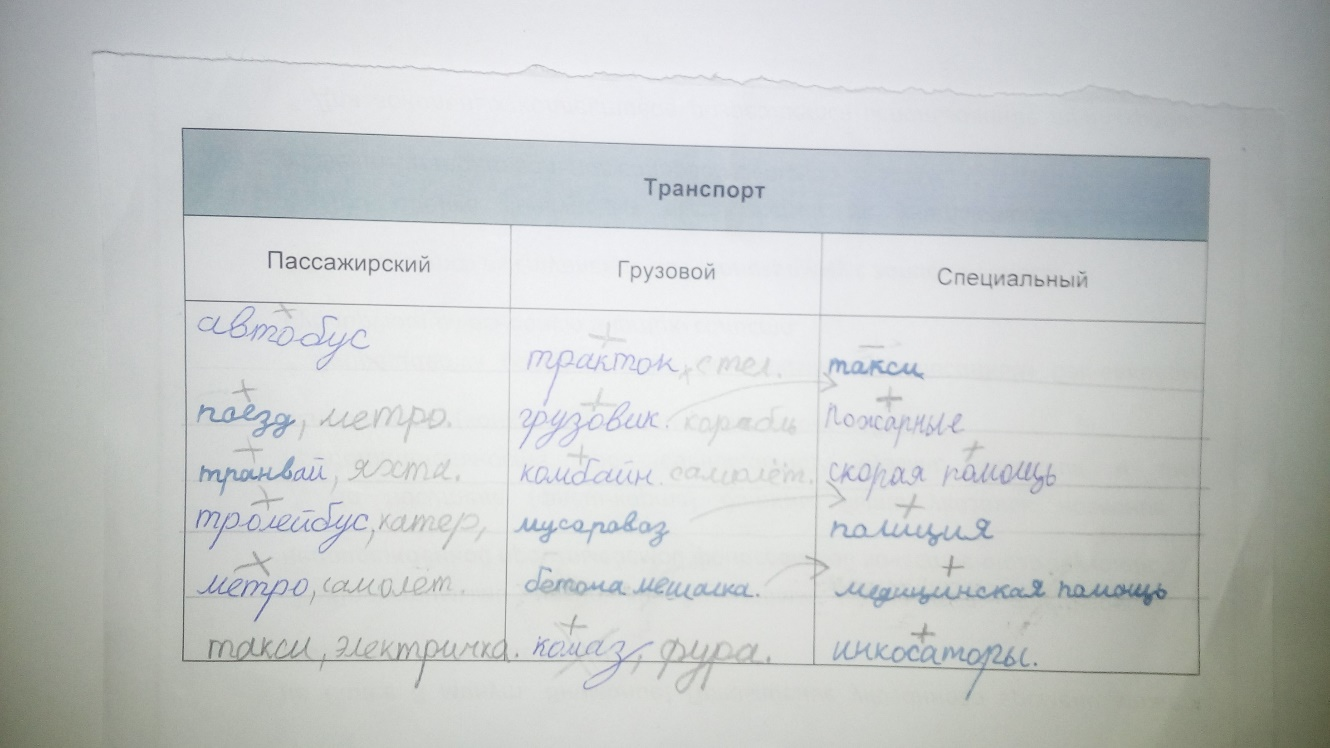 Транспорт
Пассажирский Грузовой Специальный
автобус
тракток, стел. такси
поезд, метро. грузовик. корабль Пожарные
транвай, яхта. комбайн. самолёт. скорая помощь
тролейбус, катер, мусоровоз полиция
метро, самолёт. бетона мешалка. медицинская помощь
такси, электричка. комаз, фура. инкосаторы.